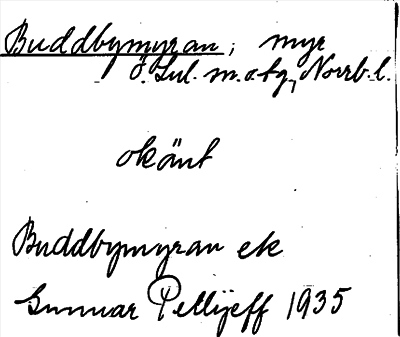 Buddbymyran, myr
Ö. Lul. m. o tg, Norrb. l.
okänt
Buddbymyran ek
Gunnar Pellijeff 1935